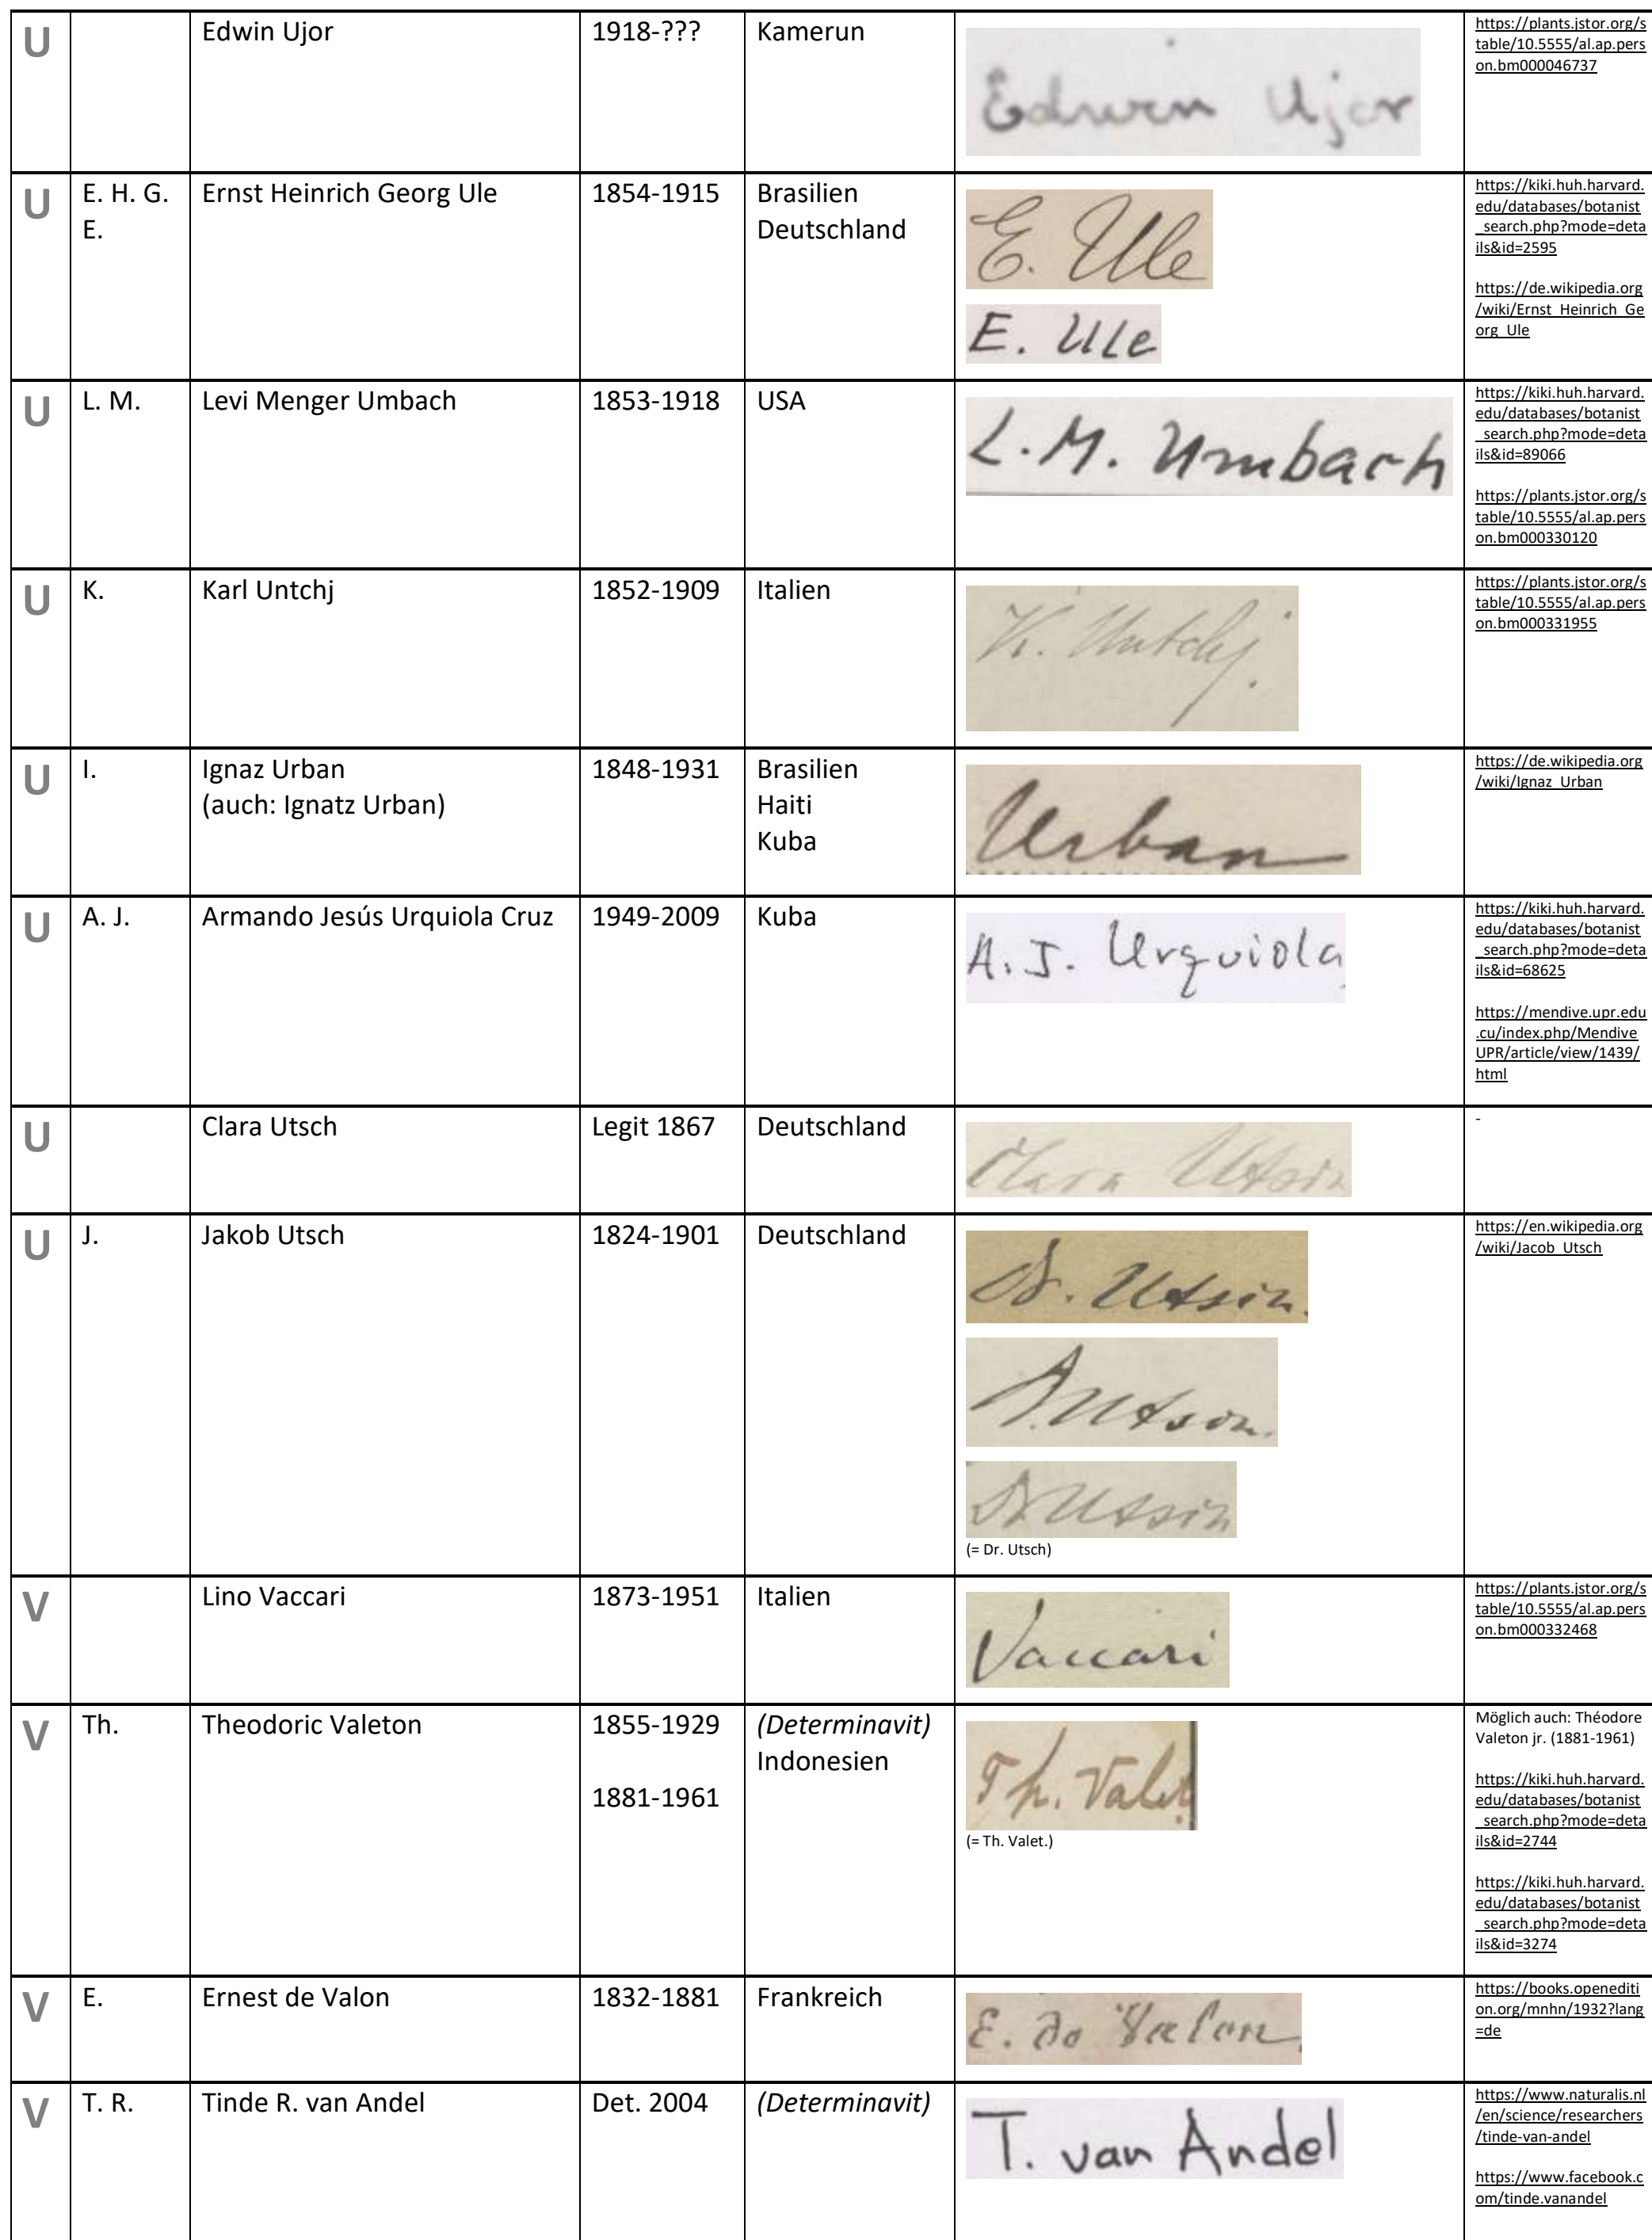 U
Edwin Ujor
1918-???
Kamerun
Edwin Ujor
https://plants.jstor.org/s
table/10.5555/al.ap.pers
on.bm000046737
U
E. H. G.
E.
Ernst Heinrich Georg Ule
1854-1915
Brasilien
Deutschland
E. Ule
E. Ule
https://kiki.huh.harvard.
edu/databases/botanist
_search.php?mode=deta
ils&id=2595
https://de.wikipedia.org
/wiki/Ernst_Heinrich_Ge
org_Ule
U
L. M.
Levi Menger Umbach
1853-1918
USA
L. M. Umbach
https://kiki.huh.harvard.
edu/databases/botanist
_search.php?mode=deta
ils&id=89066
https://plants.jstor.org/s
table/10.5555/al.ap.pers
on.bm000330120
U
K.
Karl Untchj
1852-1909
Italien
K. Untchj.
https://plants.jstor.org/s
table/10.5555/al.ap.pers
on.bm000331955
U
I.
Ignaz Urban
(auch: Ignatz Urban)
1848-1931
Brasilien
Haiti
Kuba
Urban
https://de.wikipedia.org
/wiki/Ignaz_Urban
U
A. J.
Armando Jesús Urquiola Cruz
1949-2009
Kuba
A. J. Urquiola
https://kiki.huh.harvard.
edu/databases/botanist
_search.php?mode=deta
ils&id=68625
https://mendive.upr.edu
.cu/index.php/Mendive
UPR/article/view/1439/
html
U
Clara Utsch
Legit 1867
Deutschland
Clara Utsch
-
U
J.
Jakob Utsch
1824-1901
Deutschland
Dr. Utsch.
Dr. Utsch.
Dr Utsch
(= Dr. Utsch)
https://en.wikipedia.org
/wiki/Jacob_Utsch
V
Lino Vaccari
1873-1951
Italien
Vaccari
https://plants.jstor.org/s
table/10.5555/al.ap.pers
on.bm000332468
V
Th.
Theodoric Valeton
1855-1929
1881-1961
(Determinavit)
Indonesien
Th. Valet.
(= Th. Valet.)
Möglich auch: Théodore
Valeton jr. (1881-1961)
https://kiki.huh.harvard.
edu/databases/botanist
_search.php?mode=deta
ils&id=2744
https://kiki.huh.harvard.
edu/databases/botanist
_search.php?mode=deta
ils&id=3274
V
E.
Ernest de Valon
1832-1881
Frankreich
E. de Valon.
https://books.openediti
on.org/mnhn/1932?lang
=de
V
T. R.
Tinde R. van Andel
Det. 2004
(Determinavit)
T. van Andel
https://www.naturalis.nl
/en/science/researchers
/tinde-van-andel
https://www.facebook.c
om/tinde.vanandel